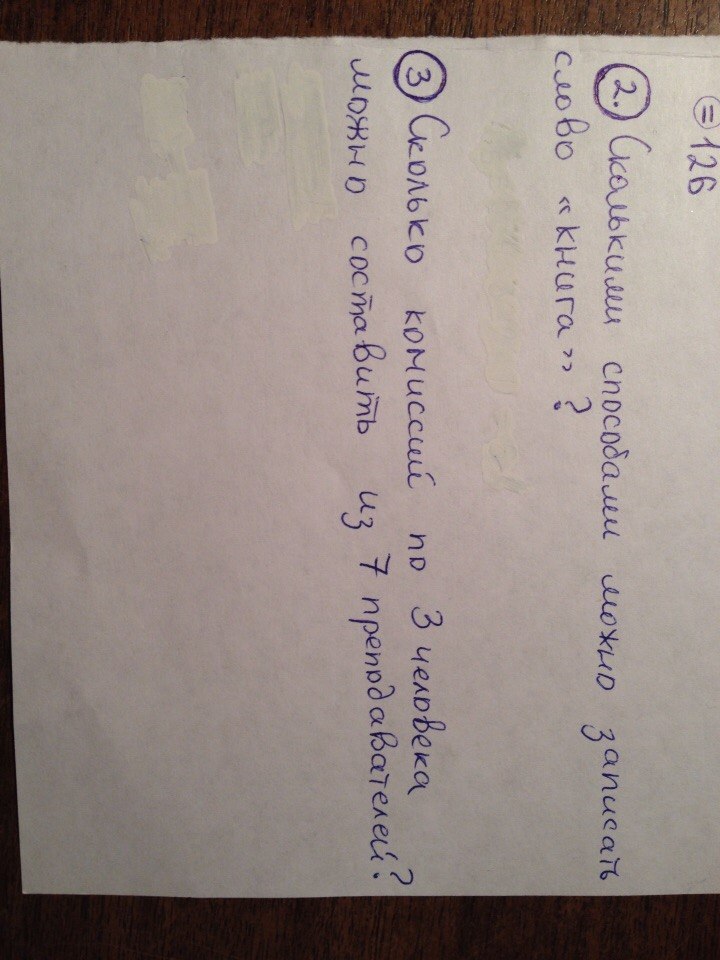 = 126
2. Сколькими способами можно записать
слово «книга»?
3 Сколько комиссий по 3 человека
можно составить из 7 преподавателей?